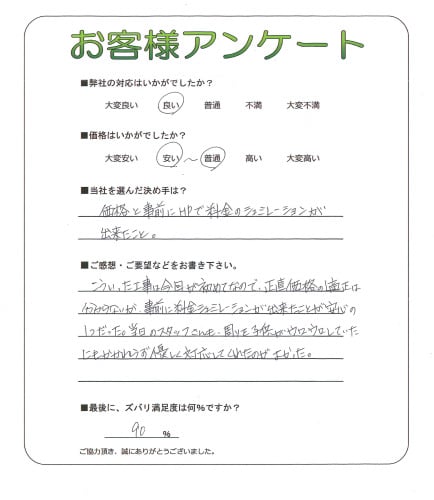 お客様アンケート
■弊社の対応はいかがでしたか？
大変良い　良い　普通　不満　大変不満
■価格はいかがでしたか？
大変安い　安い～普通　高い　大変高い
■当社を選んだ決め手は？
価格と事前にHPで料金のシュミレーションが
出来たこと。
■ご感想・ご要望などをお書き下さい。
こういった工事は今回が初めてなので、正直価格の適正は
分からないが、事前に料金シュミレーションが出来たことが安心の
1つだった。当日のスタッフさんも、周りを子供がウロウロしていた
にもかかわらず優しく対応してくれたのがよかった。
■最後に、ズバリ満足度は何％ですか？
90 ％
ご協力頂き、誠にありがとうございました。